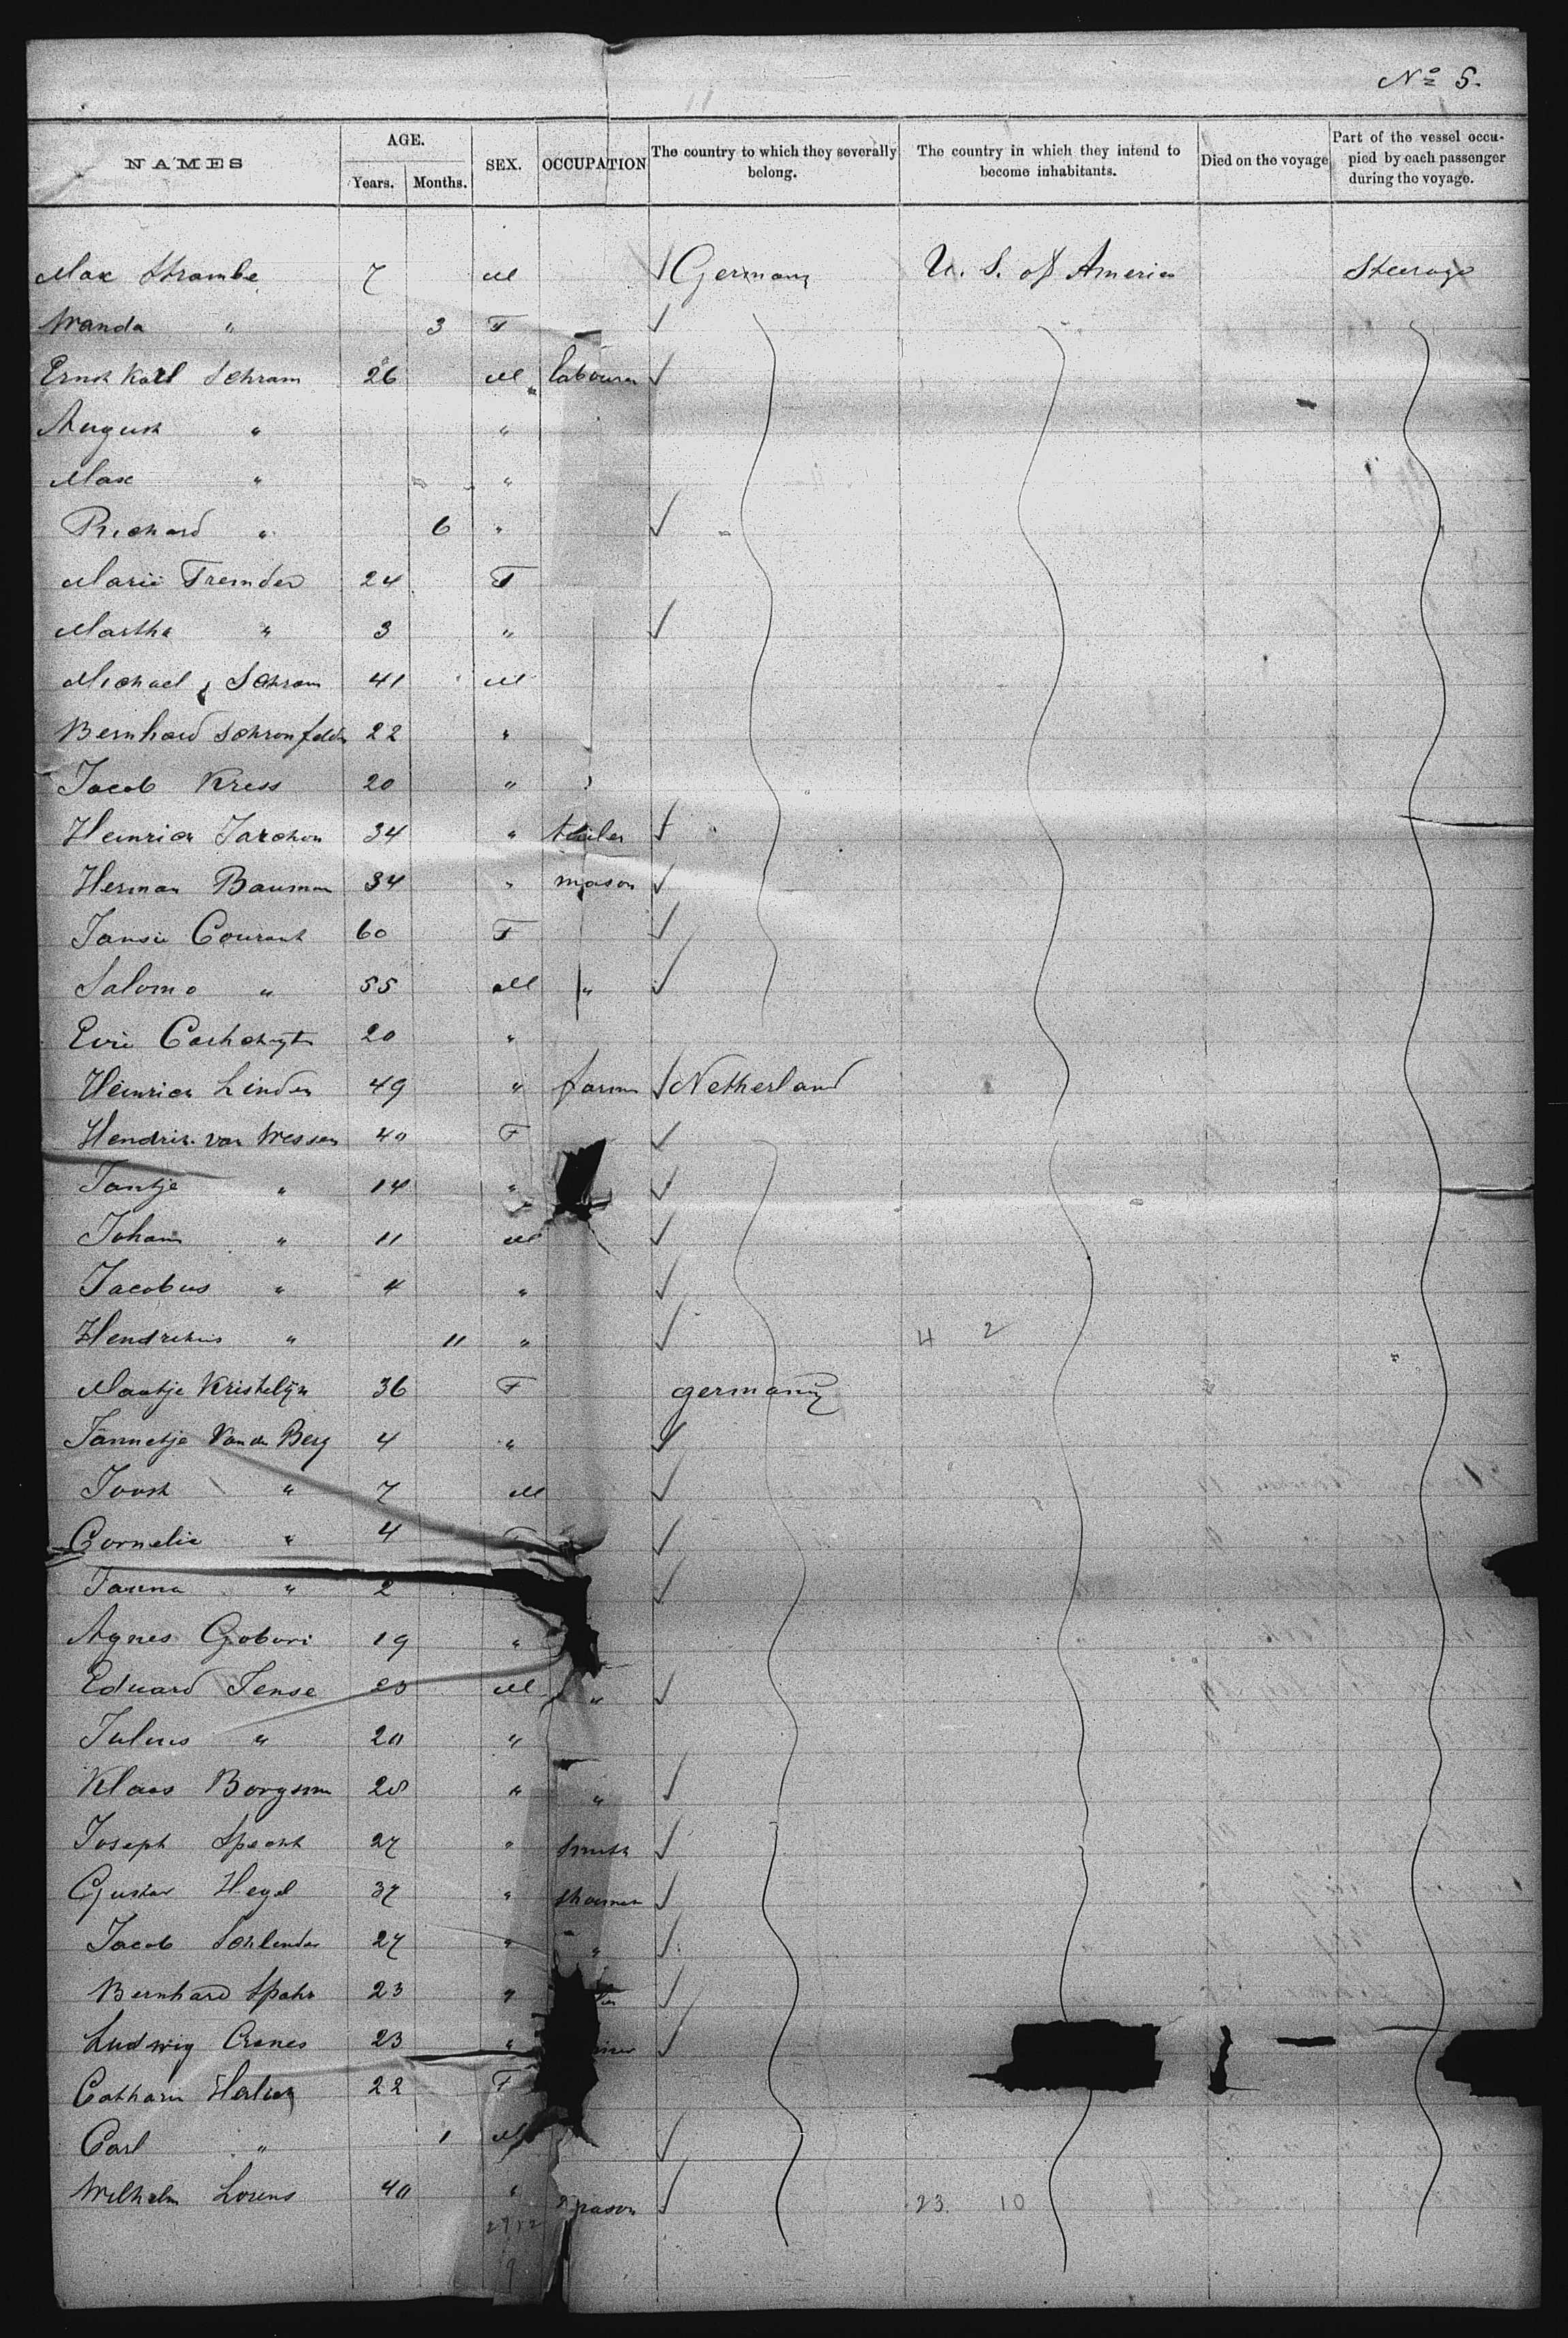 No 5.
NAMES AGE. Years. Months. SEX. OCCUPATION The country to which they severally belong. The country in which they intend to become inhabitants. Died on the voyage Part of the vessel occupied by each passenger during the voyage.
Max Strambe 7 M Germany U. S. of America Steerage
Wanda " 3 F
Ernst Karl Schram 26 M labourer
August " "
Max " "
Richard " 6 "
Marie Fremder 24 F
Martha " 3 "
Michael Schram 41 M
Bernhard Schronfelder 22 "
Jacob Kress 20 "
Heinrich Jarchow 34 "
Herman Bauman 34 " mason
Jansie Courant 60 F
Salomo " 55 M "
Evie 20 "
Heinrich Linden 49 " farmer Netherland
Hendrik van Wessen 40 F
Jantje " 14 "
Johann " 11 M
Jacobus " 4 "
Hendrikus " 11 " 4 2
Maatje Kristelijn 36 F germany
Jannetje Van den Berg 4 "
Joost " 7 M
Cornelia " 4 F
Janna " 2
Agnes Gobori 19 "
Eduard Jense 23 M "
Julius " 20 "
Klaas Borgsma 28 " "
Joseph Specht 27 " smith
Gustav Hegel 37 " shoemak
Jacob Schlender 27 " "
Bernhard Spahr 23 "
Ludwig Crones 23 "
Catharin 22 F
Carl " 1 M
Wilhelm Lorens 40 " mason 23. 10